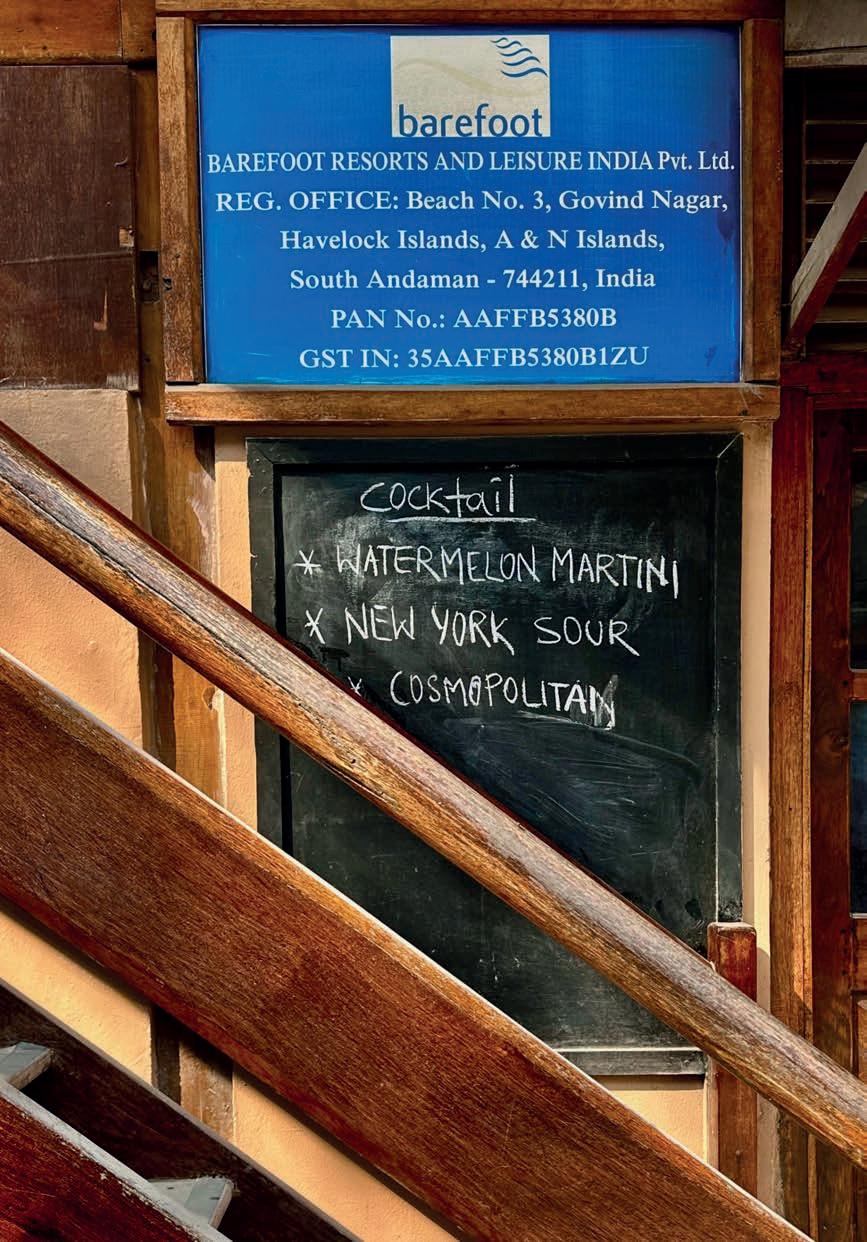 barefoot
BAREFOOT RESORTS AND LEISURE INDIA Pvt. Ltd.
REG. OFFICE: Beach No. 3, Govind Nagar,
Havelock Islands, A & N Islands,
South Andaman - 744211, India
PAN No.: AAFFB5380B
GST IN: 35AAFFB5380B1ZU
cocktail
* WATERMELON MARTINI
* NEW YORK SOUR
* COSMOPOLITAN